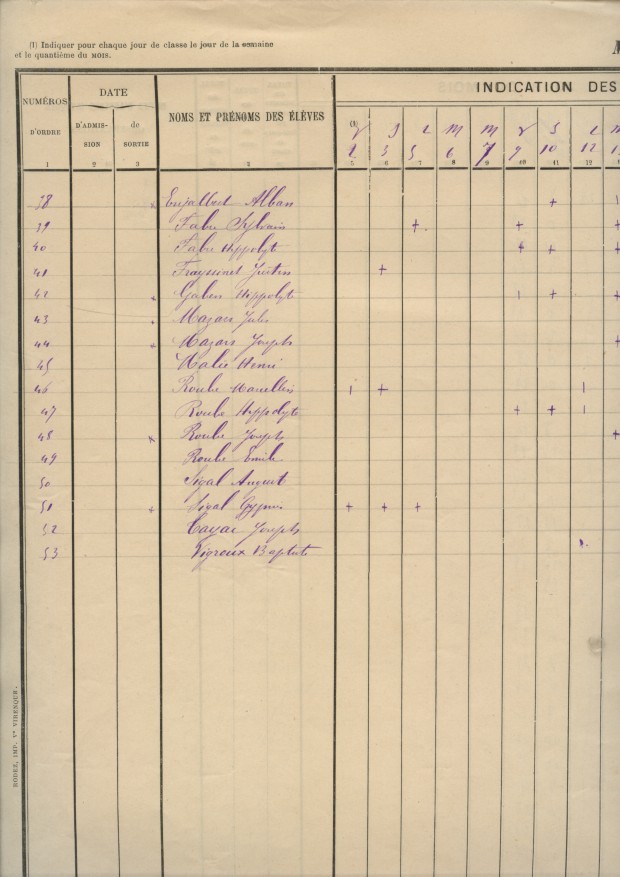 (1) Indiquer pour chaque jour de classe le jour de la semaine
et le quantième du MOIS.
INDICATION DES
NUMÉROS D'ORDRE
DATE
D'ADMISSION
de SORTIE
NOMS ET PRÉNOMS DES ÉLÈVES
(1) V S L M M V S L M
2 3 5 6 7 9 10 12
1 2 3 5 6 7 8 9 10 11 12
38 Enjalbert Alban +
39 Fabre Sylvain + + +
40 Fabre Hippolyte + + +
41 Frayssinet Justin +
42 Hippolyte + +
43 Mazars Jules
44 Mazars Joseph +
45 Henri
46 Roube Marcellin +
47 Roube Hippolyte + +
48 Roube Joseph +
49 Roube Emile
50 Sigal August
51 Sigal + + +
52 Cayac Joseph
53 Vigroux Baptiste
RODEZ, IMP. Vᵉ VIRENQUE.